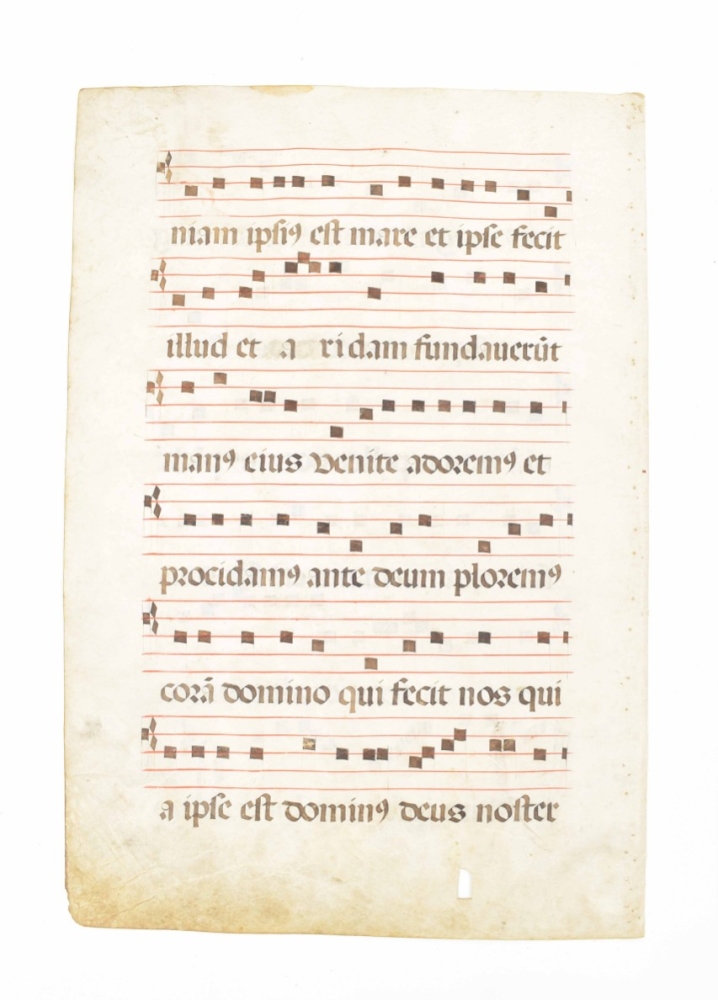 niam ipsiꝰ est mare et ipse fecit
illud et a ridam fundauerūt
manꝰ eius venite adoremꝰ et
procidamꝰ ante deum ploremꝰ
corā domino qui fecit nos qui
a ipse est dominꝰ deus noster